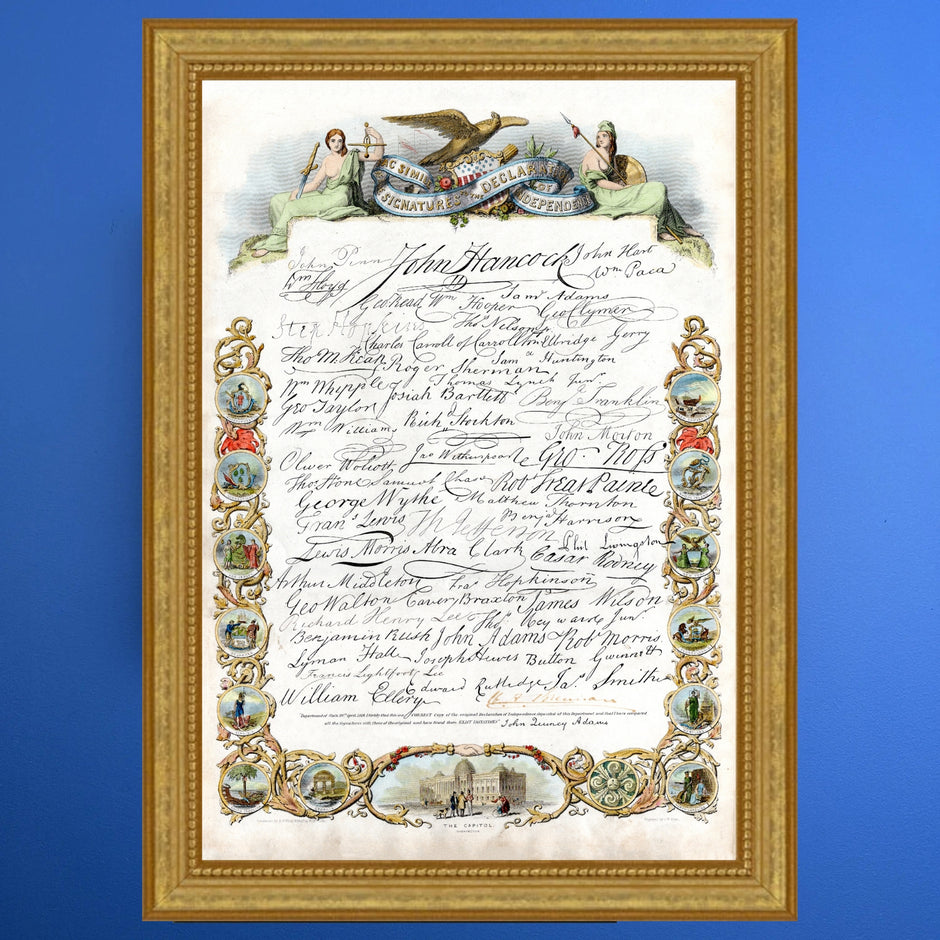 FAC SIMILE
SIGNATURES TO THE DECLARATION OF INDEPENDENCE
John Penn John Hancock John Hart
Wm Floyd Wm Paca
Geo Read Wm Hooper Saml Adams Geo Clymer
Step Hopkins Thos Nelson jr
Charles Carroll of Carrollton Elbridge Gerry
Tho M:Kean Roger Sherman Saml Huntington
Wm Whipple Thomas Lynch Junr.
Geo Taylor Josiah Bartlett Benj Franklin
Wm Williams Richd Stockton John Morton
Oliver Wolcott Jno Witherspoon Geo. Ross
Thos Stone Samuel Chase Rob Treat Paine
George Wythe Matthew Thornton
Frans. Lewis Th Jefferson Benj Harrison
Lewis Morris Abra Clark Phil. Livingston
Cæsar Rodney
Arthur Middleton Fras Hopkinson
Geo Walton Carter Braxton James Wilson
Richard Henry Lee Thos. Heyward Junr.
Benjamin Rush John Adams Robt Morris
Lyman Hall Joseph Hewes Button Gwinnett
Francis Lightfoot Lee
William Ellery Edward Rutledge Jas. Smith
Department of State, 19th April, 1819. I certify that this is a CORRECT COPY of the original Declaration of Independence deposited at this Department and that I have compared
all the signatures with those of the original and have found them EXACT IMITATIONS. John Quincy Adams
THE CAPITOL
WASHINGTON